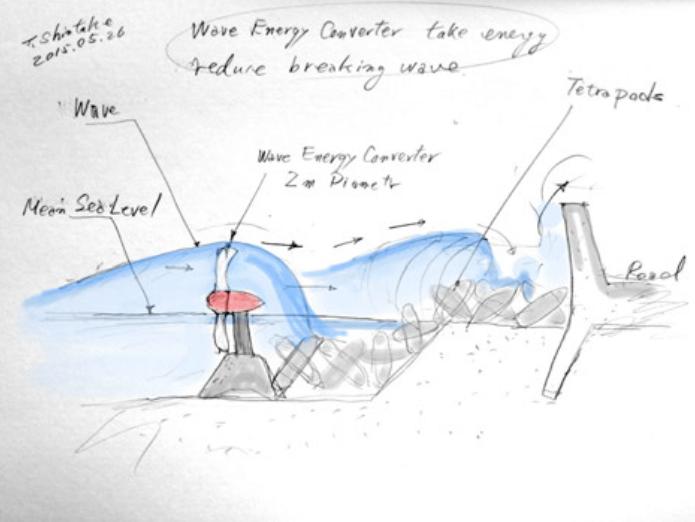 T. Shintake
2015.05.26
Wave Energy Converter take energy
reduce breaking wave
Tetrapods
Wave
Wave Energy Converter
2m Diametr
Mean Sea Level
Road